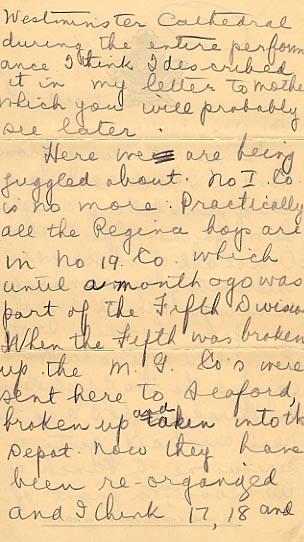 Westminster Cathedral
during the entire perform
ance I think I described
it in my letter to mother
which you will probably
see later.
Here we are being
juggled about. No I. Co.
is no more. Practically
all the Regina boys are
in No 19. Co. which
until a month ago was
part of the Fifth Division
When the Fifth was broken
up the M. G. Co's were
sent here to Seaford,
broken up and taken into the
Depot. Now they have
been re-organized
and I think 17, 18 and